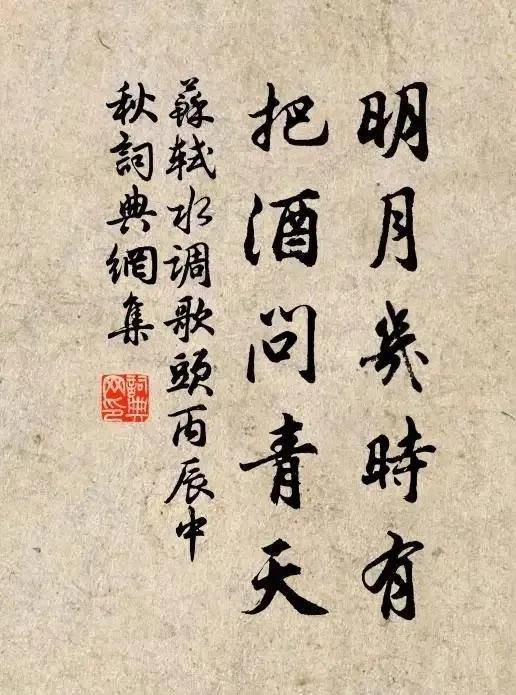 明月幾時有
把酒問青天
蘇軾水调歌頭丙辰中
秋詞典網集
詞典
网印